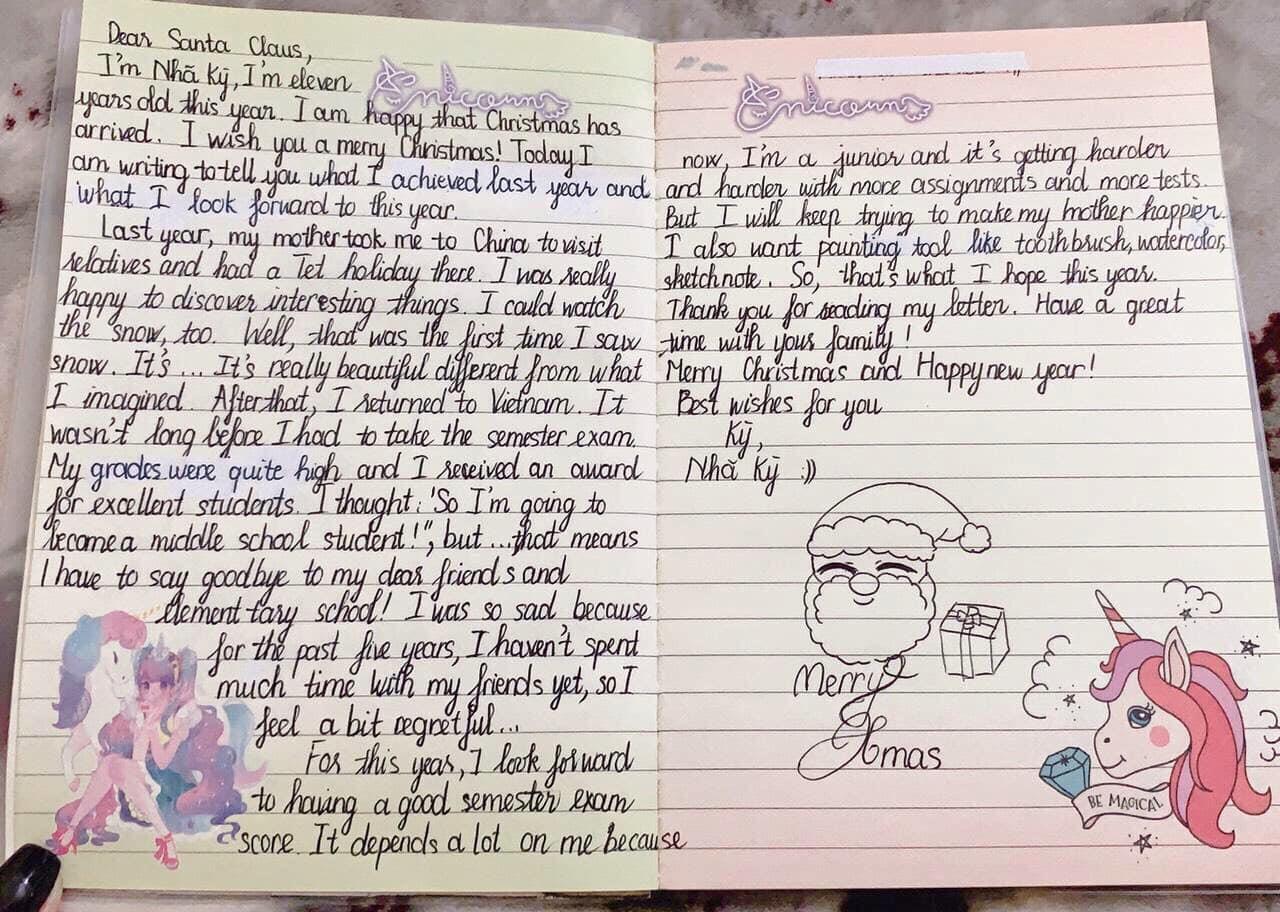 Dear Santa Claus,
I'm Nhã Kỳ, I'm eleven
Unicorn
years old this year. I am happy that Christmas has
arrived. I wish you a merry Christmas! Today I
am writing to tell you what I achieved last year and
what I look forward to this year.
Last year, my mother took me to China to visit
relatives and had a Tet holiday there. I was really
happy to discover interesting things. I could watch
the snow, too. Well, that was the first time I saw
snow. It's ... It's really beautiful different from what
I imagined. After that, I returned to Vietnam. It
wasn't long before I had to take the semester exam.
My grades were quite high and I received an award
for excellent students. I thought: 'So I'm going to
become a middle school student!", but ... that means
I have to say goodbye to my dear friends and
elementtary school! I was so sad because
for the past five years, I haven't spent
much time with my friends yet, so I
feel a bit regretful...
For this year, I look forward
to having a good semester exam
score. It depends a lot on me because
Unicorn
now, I'm a junior and it's getting harder
and harder with more assignments and more tests.
But I will keep trying to make my mother happier.
I also want painting tool like toothbrush, watercolor,
sketchnote. So, that's what I hope this year.
Thank you for reading my letter. Have a great
time with your family!
Merry Christmas and Happy new year!
Best wishes for you
Kỳ,
Nhã Kỳ :))
Merry
Xmas
BE MAGICAL